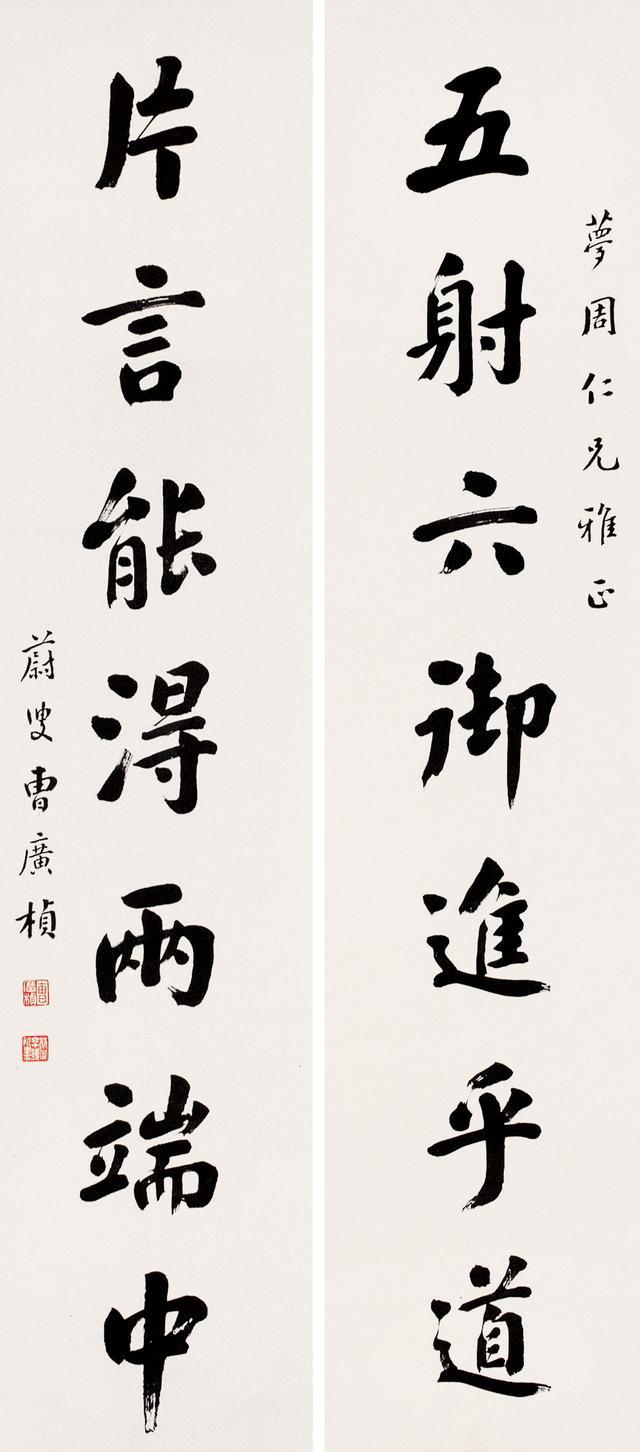 夢周仁兄雅正
五射六御進乎道
片言能得兩端中
蔚叟曹廣楨
曹廣楨